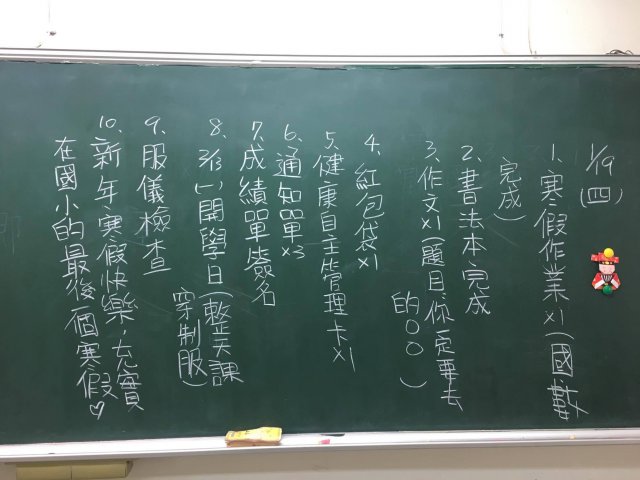 1/19(四)
1. 寒假作業x1(國數
完成)
2. 書法本完成
3. 作文x1(題目:你一定要去
的〇〇)
4. 紅包袋x1
5. 健康自主管理卡x1
6. 通知單x3
7. 成績單簽名
8. 2/13(一)開學日(整天課
穿制服)
9. 服儀檢查
10. 新年寒假快樂,充實
在國小的最後一個寒假♡